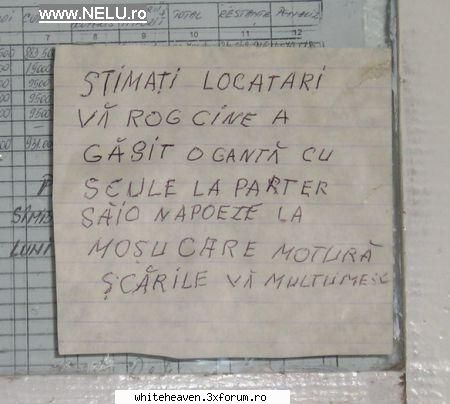 www.NELU.ro
TOTAL
7 8 9 10 11 12
STIMAȚI LOCATARI
VĂ ROG CINE A
GĂSIT O GANTĂ CU
SCULE LA PARTER
SĂIO NAPOEZE LA
MOȘU CARE MOTURĂ
ȘCĂRILE VĂ MULTUMESC
LUNI
whiteheaven.3xforum.ro